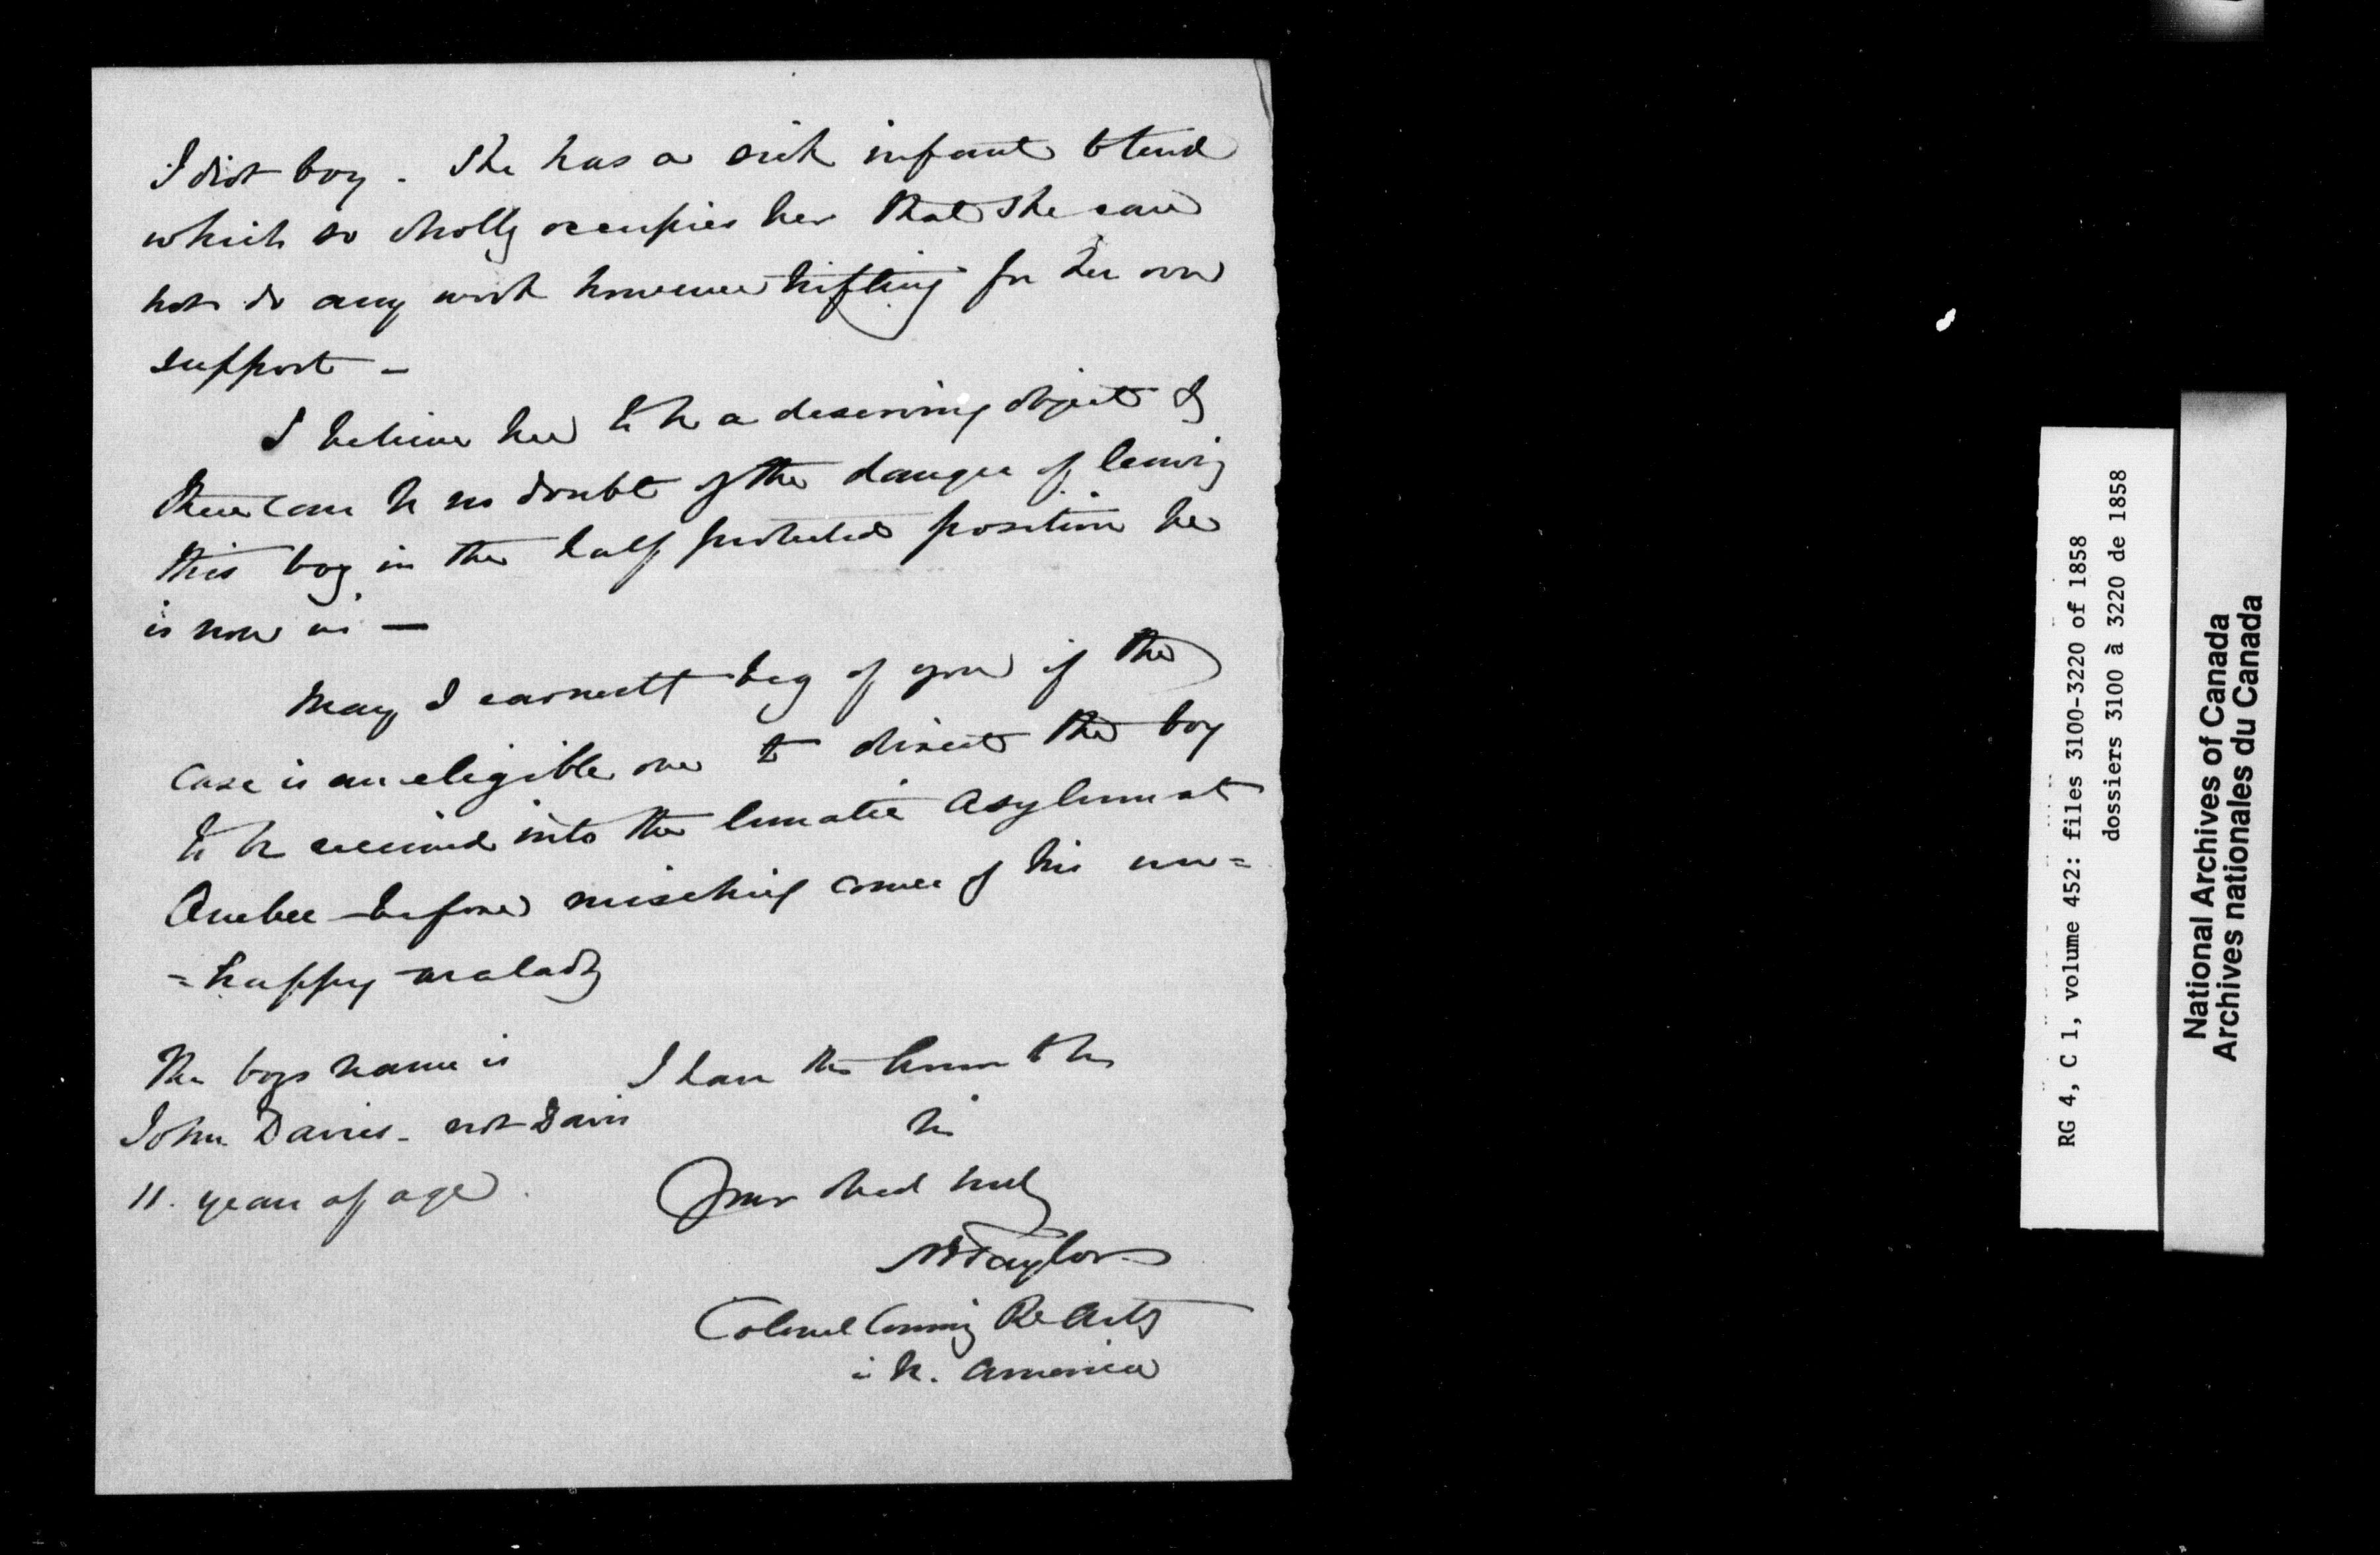 Idiot boy. She has a sick infant to tend
which so wholly occupies her that she can
not do any work however trifling for her own
support –
I believe her to be a deserving object &
there can be no doubt of the danger of leaving
this boy in the half protected position he
is now in —
May I earnestly beg of you if the
case is an eligible one to direct the boy
to be received into the lunatic Asylum at
Quebec before mischief comes of his un=
=happy malady
The boys name is
John Davies – not Davis
11. years of age.
I have the honor to be
Sir
Your obed
Taylor
Colonel Comg Rl Arty
in N. America
RG 4, C 1, volume 452: files 3100-3220 of 1858
dossiers 3100 à 3220 de 1858
National Archives of Canada
Archives nationales du Canada